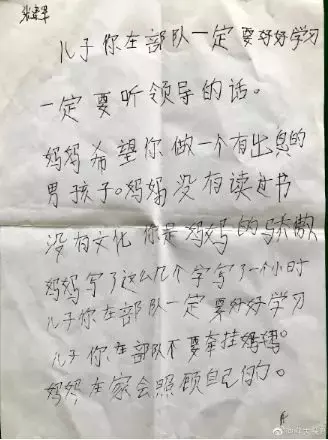 儿子你在部队一定要好好学习
一定要听领导的话。
妈妈希望你做一个有出息的
男孩子。妈妈没有读过书
没有文化 你是妈妈的骄傲
妈妈写了这么几个字写了一个小时
儿子你在部队一定要好好学习
儿子你在部队不要牵挂妈妈。
妈妈在家会照顾自己的。